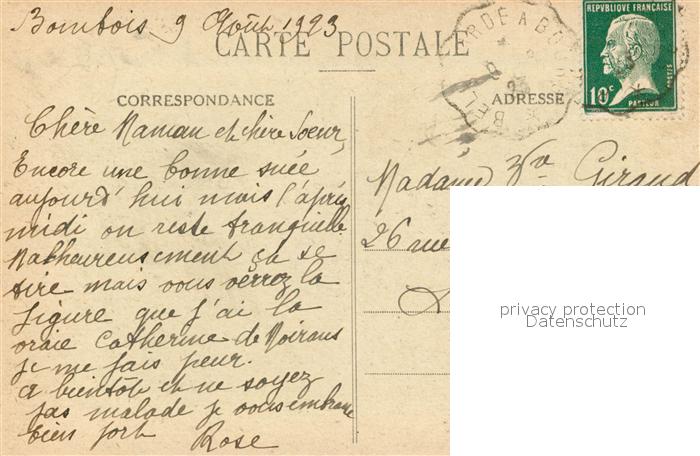 Bombois 9 Août 1923
CARTE POSTALE
CORRESPONDANCE
Chère Maman et chère Soeur,
Encore une bonne suée
aujourd'hui mais l'après
midi on reste tranquille
Malheureusement ça se
tire mais vous verrez la
figure que j'ai la
vraie Catherine de Moirans
je me fais peur.
a bientôt et ne soyez
pas malade je vous embrasse
bien fort
Rose
REPUBLIQUE FRANÇAISE
10c
POSTES
PASTEUR
ADRESSE
Madame Vve Giraud
26 rue
privacy protection
Datenschutz